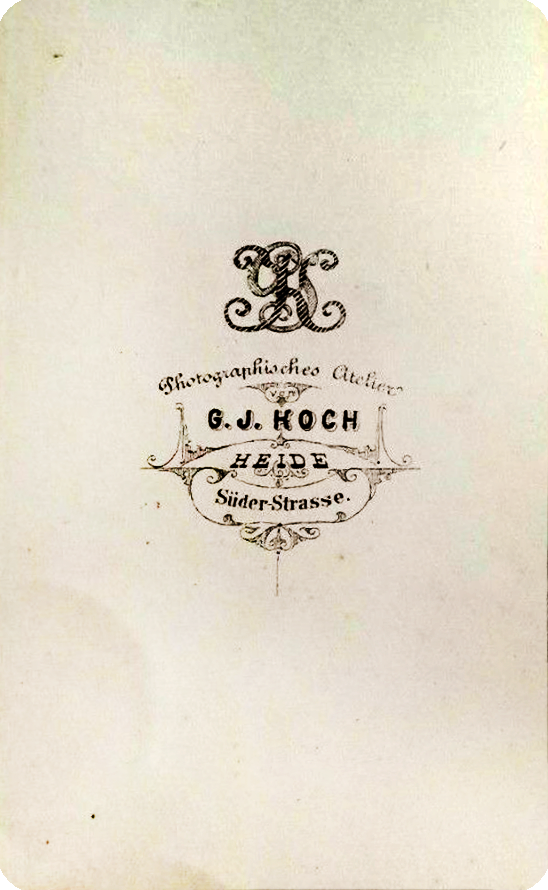 GJK
Photographisches Atelier
von
G. J. KOCH
HEIDE
Süder-Strasse.